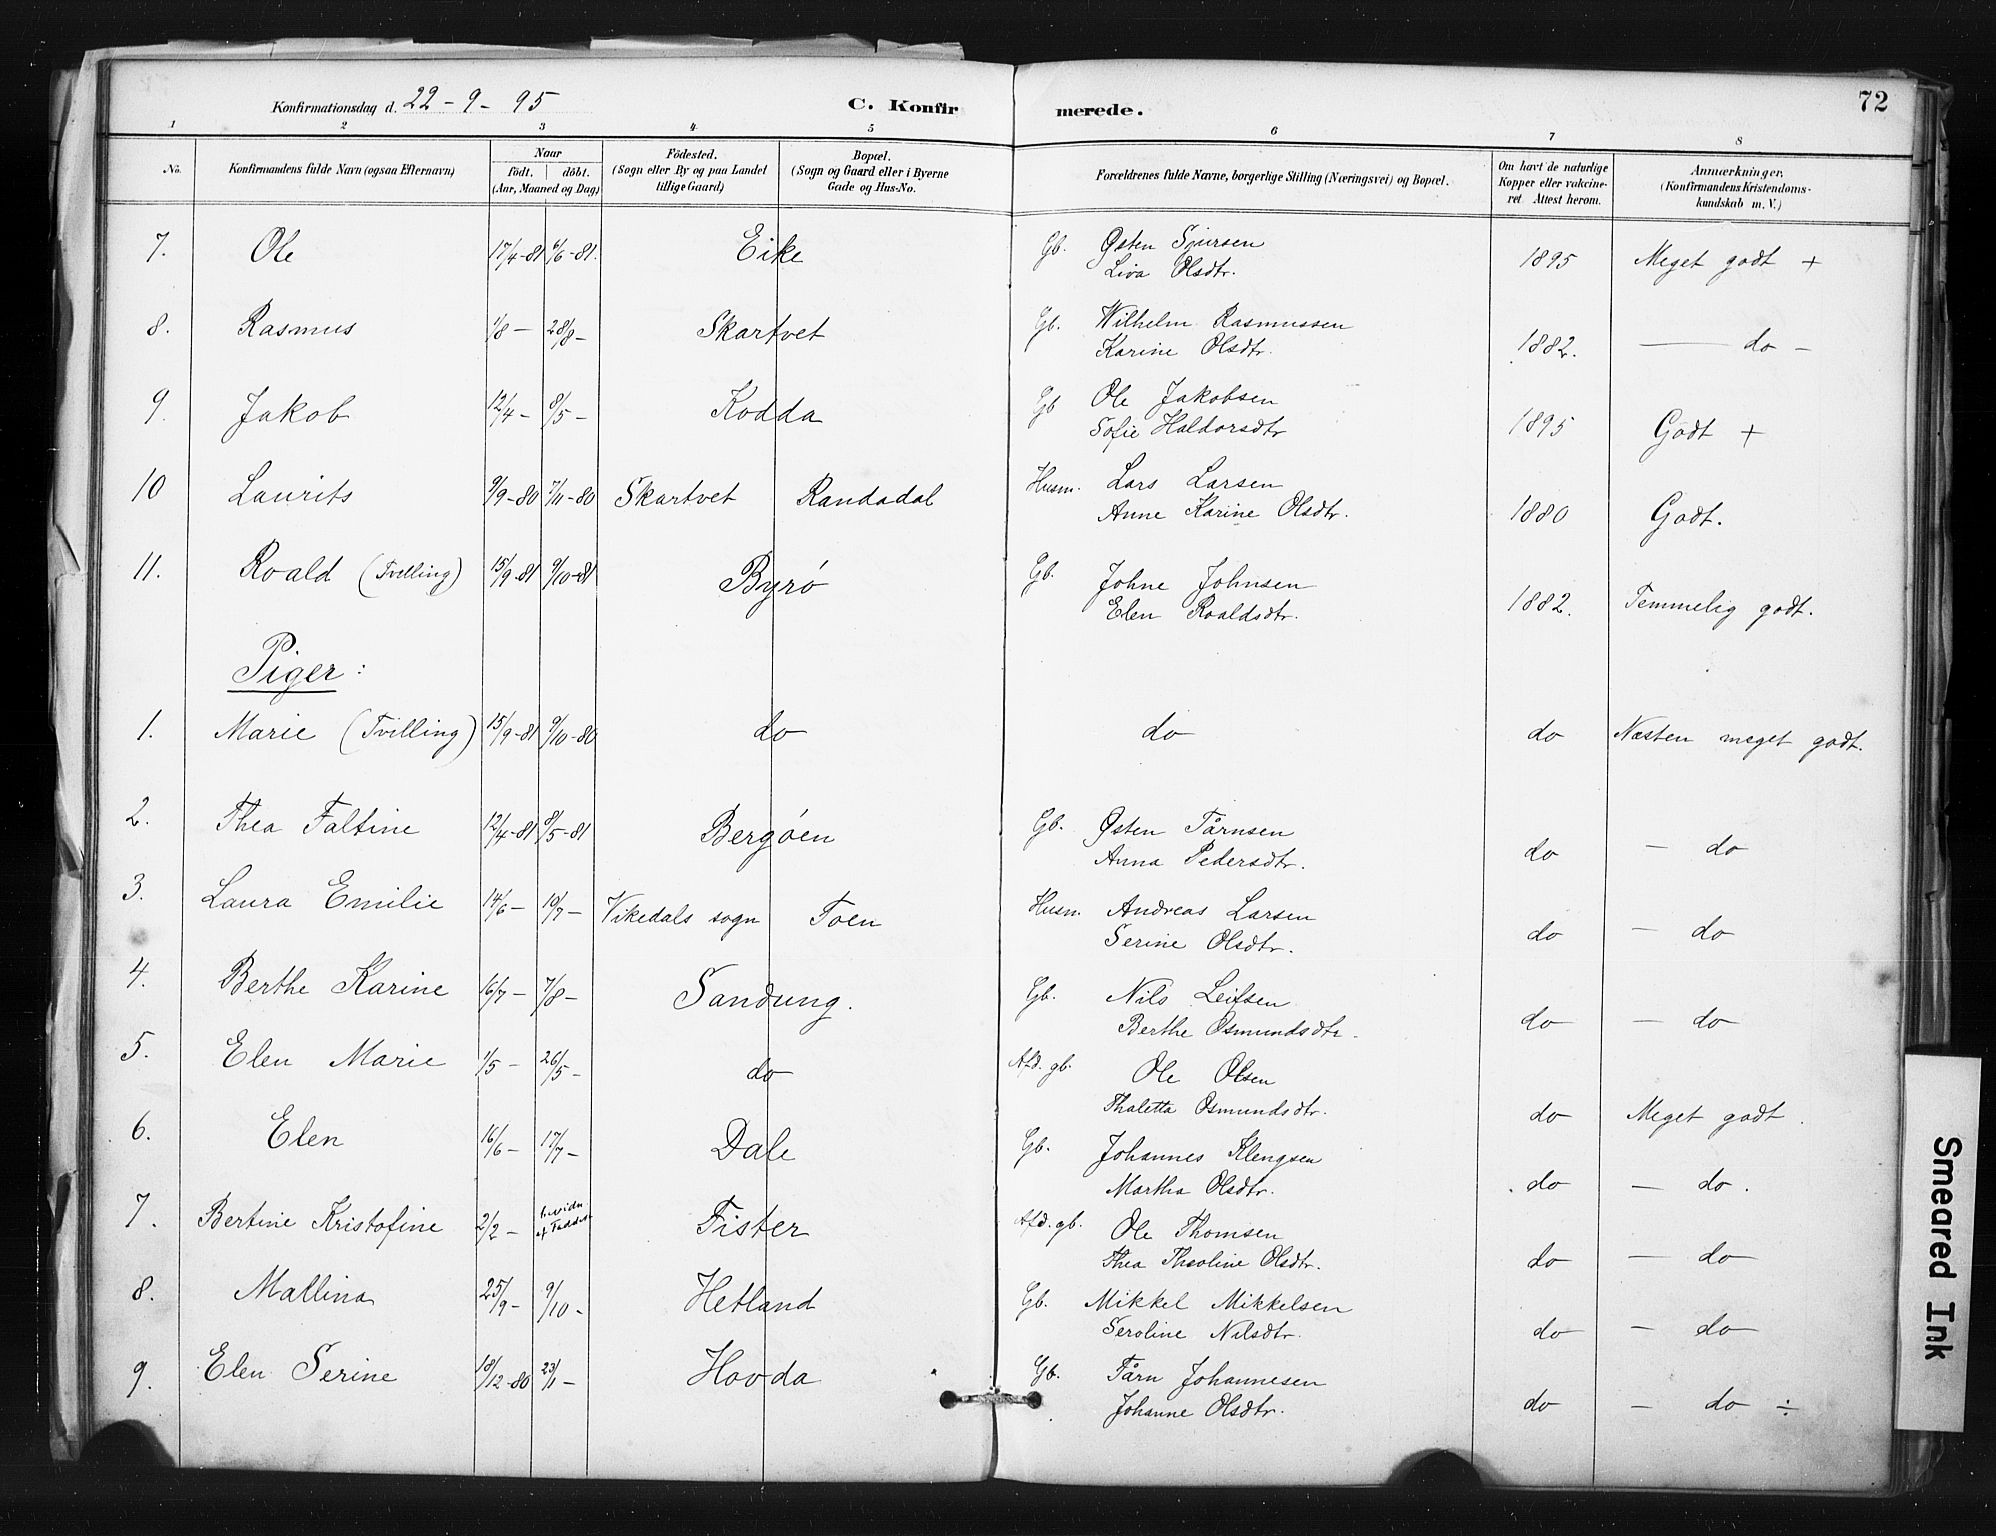 Konfirmationsdag d. 22 - 9 - 95 C. Konfirmerede. 72
1 2 3 4 5 6 7 8
No. Konfirmandens fulde Navn (ogsaa Efternavn) Naar födt. döbt. (Aar, Maaned og Dag) Födested. (Sogn eller By og paa Landet tillige Gaard) Bopæl. (Sogn og Gaard eller i Byerne Gade og Hus-No. Forældrenes fulde Navne, borgerlige Stilling (Næringsvei) og Bopæl. Om havt de naturlige Kopper eller vakcineret. Attest herom. Anmærkninger. (Konfirmandens Kristendomskundskab m. V.)
7. Ole 17/4-81 6/6-81. Eike Gb. Østen Sjursen
Liva Olsdtr. 1895 Meget godt +
8. Rasmus 1/8 - 28/8 - Skartvet Gb. Wilhelm Rasmussen
Karine Olsdtr. 1882. — do -
9. Jakob 12/4 - 8/5 - Kodda Gb Ole Jakobsen
Sofie Haldorsdtr 1895 Godt +
10 Laurits 9/9-80 7/11-80 Skartvet Randadal Husm. Lars Larsen
Anne Karine Olsdtr. 1880 Godt.
11. Roald (Tvilling) 15/9-81 9/10-81 Byrø Gb. Johne Johnsen
Elen Roaldsdtr. 1882. Temmelig godt.
Piger:
1. Marie (Tvilling) 15/9-81 9/10-80 do do do Næsten meget godt.
2. Thea Faltine 12/4-81 8/5-81 Bergøen Gb. Østen Tårnsen
Anna Pedersdtr. do - do
3. Laura Emilie 14/6 - 10/7 - Vikedals sogn Toen Husm. Andreas Larsen
Serine Olsdtr. do - do
4. Berthe Karine 16/7 - 7/8 - Sandung. Gb. Nils Leifsen
Berthe Osmundsdtr. do - do
5. Elen Marie 1/5 - 26/5 - do Afd. gb. Ole Olsen
Thaletta Osmundsdtr. do Meget godt.
6. Elen 16/6 - 17/7 - Dale Gb. Johannes Klengsen
Martha Olsdtr. do - do.
7. Bertine Kristofine 2/2 - Fister Afd. gb. Ole Thomsen
Thea Theoline Olsdtr. do - do
8. Mallina 25/9 - 9/10 - Hetland Gb. Mikkel Mikkelsen
Seroline Nilsdtr. do - do
9. Elen Serine 18/12-80 23/1 - Hovda Gb. Tårn Johannesen
Johanne Olsdtr. do - do ÷
Smeared Ink